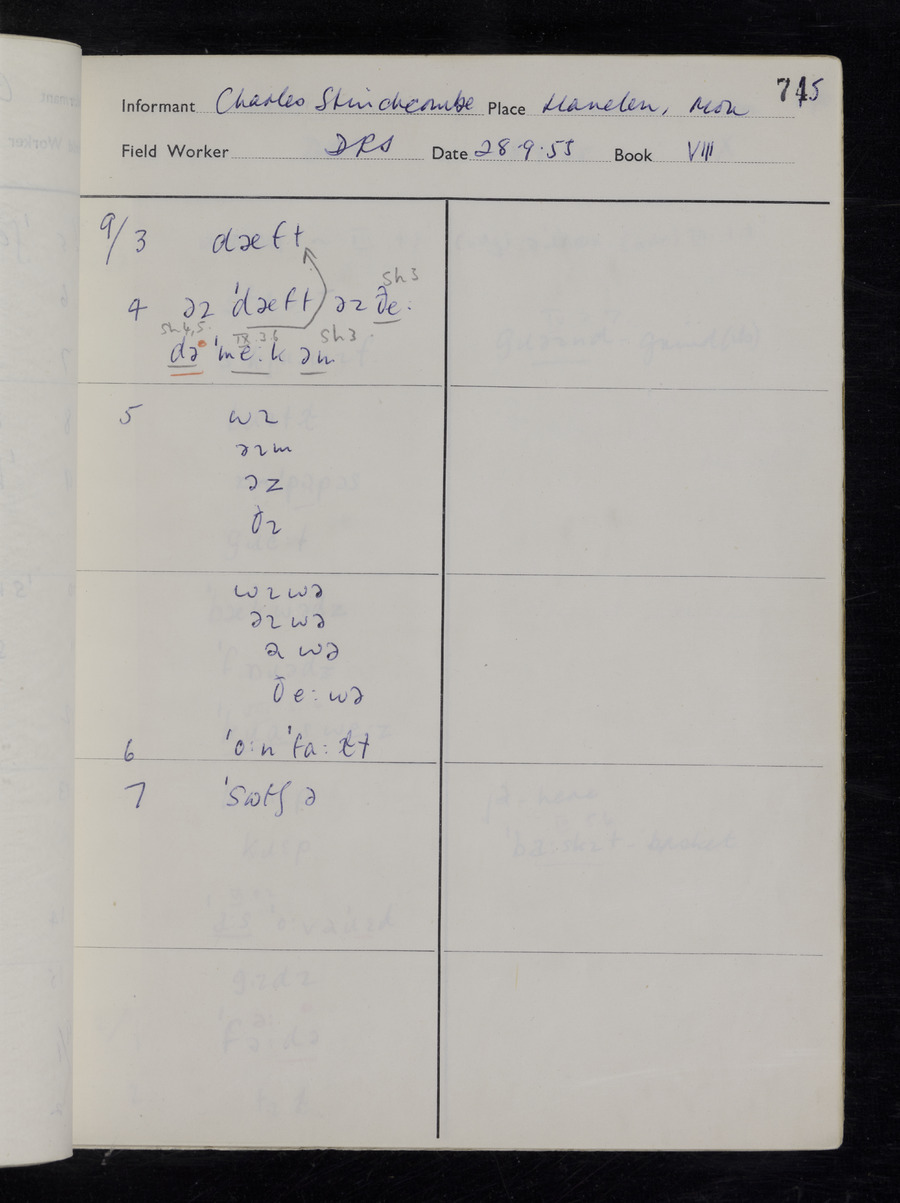 745
Informant Charles Stinchcombe Place Llanelen, Mon
Field Worker DRS Date 28.9.55 Book VIII
9/3 dæft
Sh 3
4 əz 'dæft əz ðe:
Sh 4,5. IX.3.6 Sh 3
də 'me:k əm
5 wɪ
əɪm
əz
ðɪ
wɪwə
əɪwə
ə wə
ðe:wə
6 'o:n 'fa:ɫt
7 'sɷtʃ ə